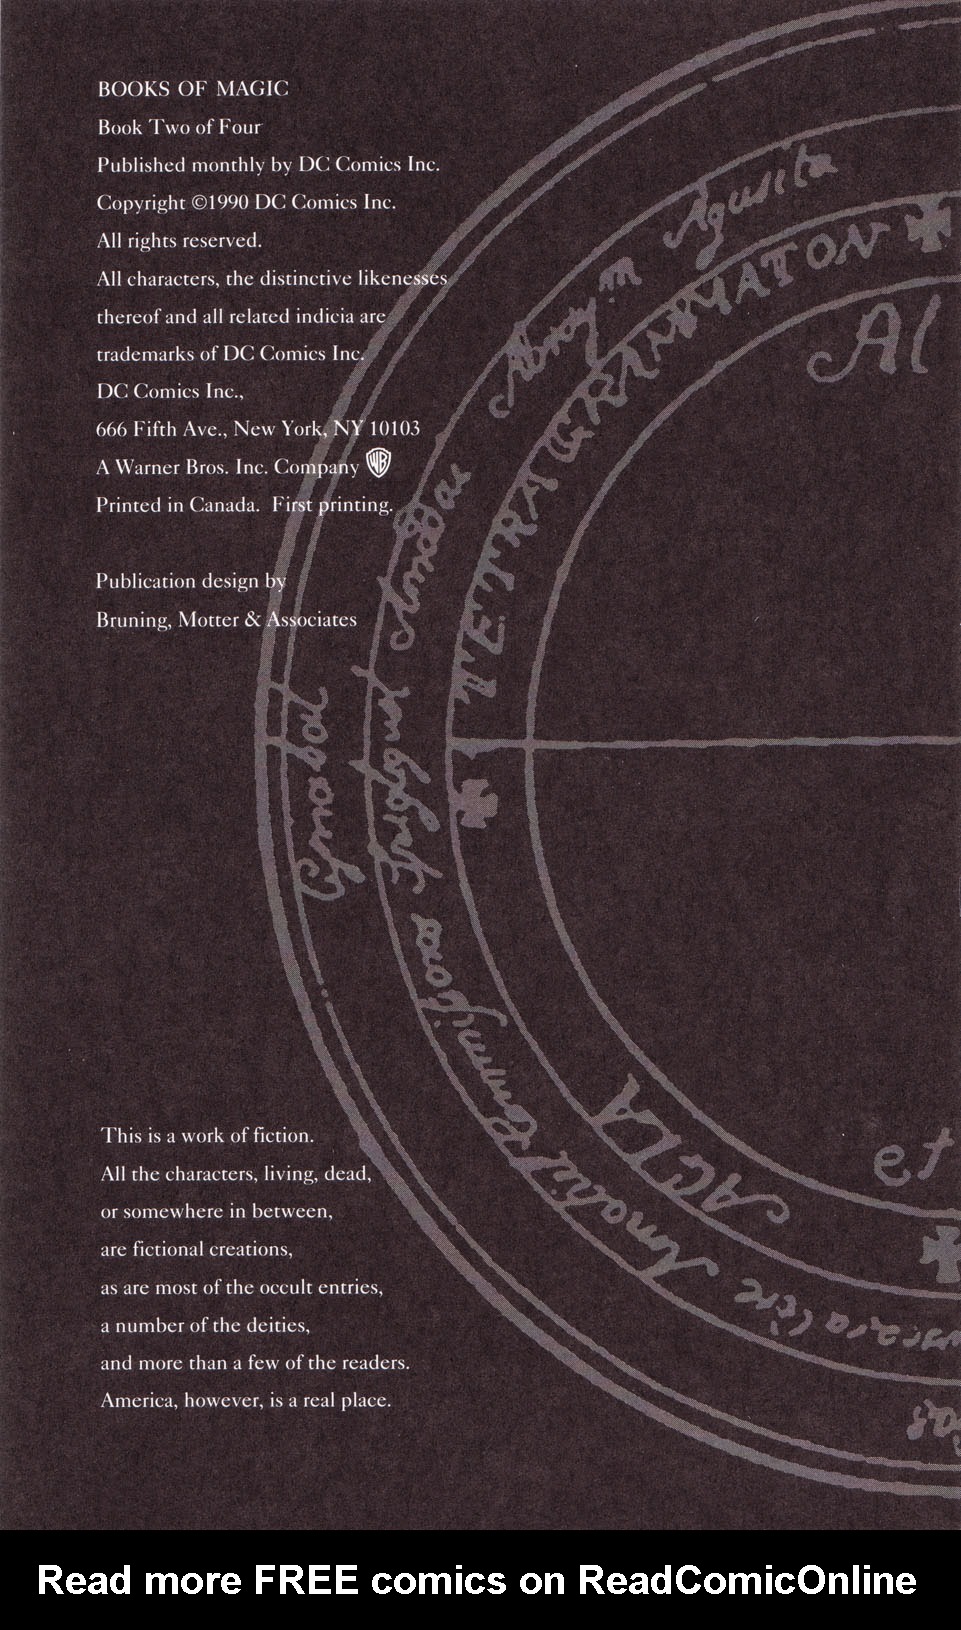 BOOKS OF MAGIC
Book Two of Four
Published monthly by DC Comics Inc.
Copyright ©1990 DC Comics Inc.
All rights reserved.
All characters, the distinctive likenesses
thereof and all related indicia are
trademarks of DC Comics Inc.
DC Comics Inc.,
666 Fifth Ave., New York, NY 10103
A Warner Bros. Inc. Company WB
Printed in Canada.  First printing.
Publication design by
Bruning, Motter & Associates
Al
et
This is a work of fiction.
All the characters, living, dead,
or somewhere in between,
are fictional creations,
as are most of the occult entries,
a number of the deities,
and more than a few of the readers.
America, however, is a real place.
Read more FREE comics on ReadComicOnline